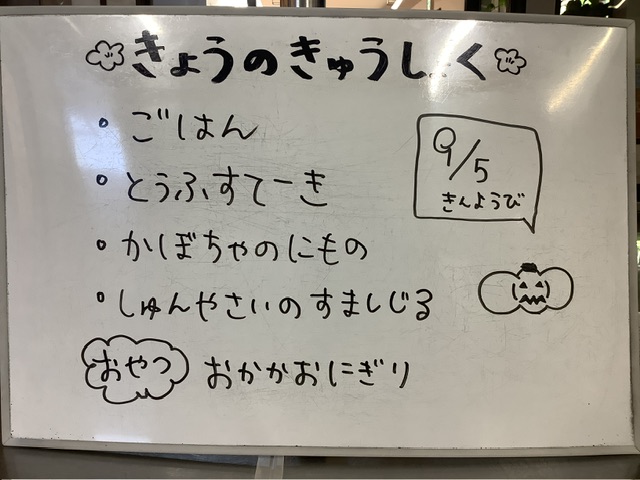 きょうのきゅうしょく
・ごはん
・とうふすてーき
・かぼちゃのにもの
・しゅんやさいのすましじる
おやつ おかかおにぎり
9/5
きんようび